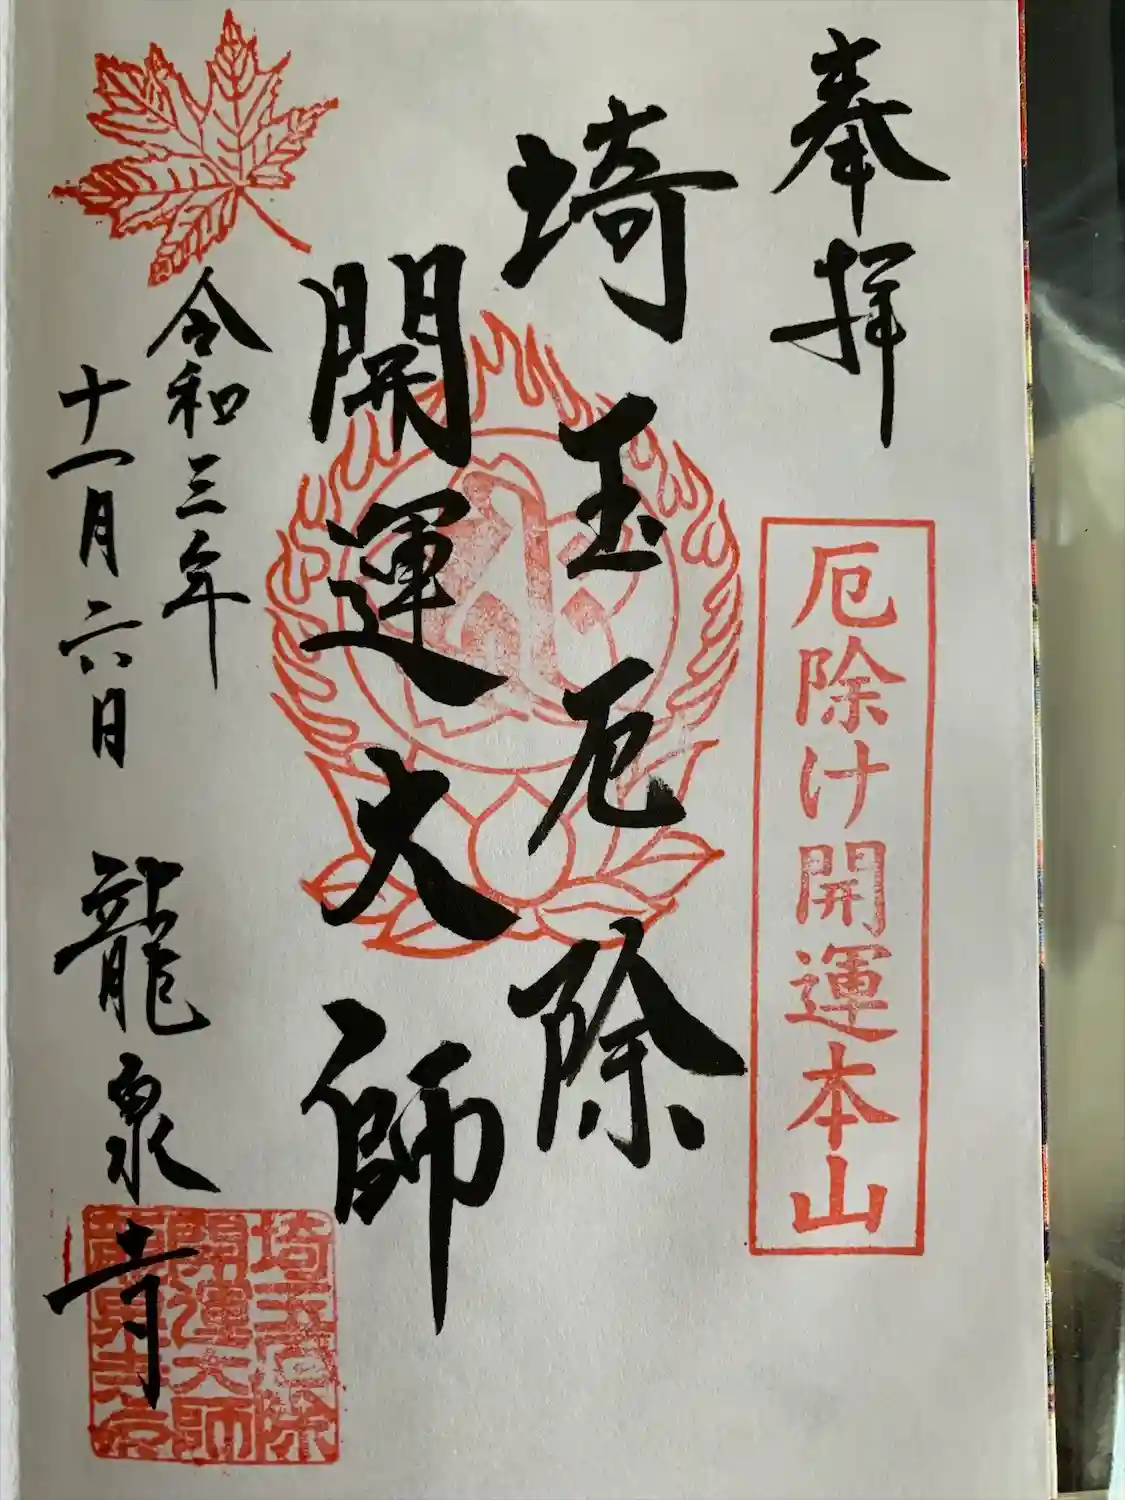 奉拝
厄除け開運本山
埼玉厄除
開運大師
令和三年
十一月六日
龍泉寺
埼玉厄除
開運大師
龍泉寺印